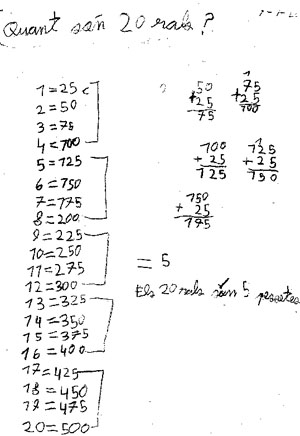 Quant són 20 rals?
1=25
2=50
3=75
4=100
5=125
6=150
7=175
8=200
9=225
10=250
11=275
12=300
13=325
14=350
15=375
16=400
17=425
18=450
19=475
20=500
50
+25
75
1
75
+25
100
100
+ 25
125
1
125
+ 25
150
150
+ 25
175
= 5
Els 20 rals són 5 pesetes